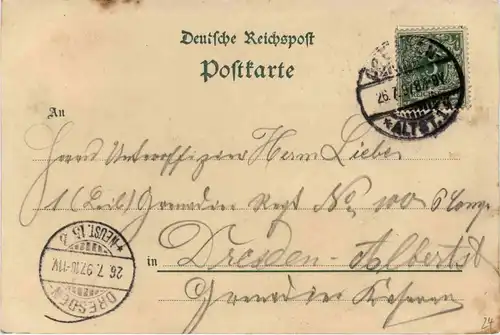 Deutsche Reichspost
Postkarte
An
Herrn Unteroffizier Herm. Liebe
1 (Leib) Grenadier Regt No. 100 6 Comp
in Dresden-Albertst
Grenadier Kaserne
26.7.97
*ALTST.
*NEUST.
26.7.97.10-11V.
DRESDEN
24